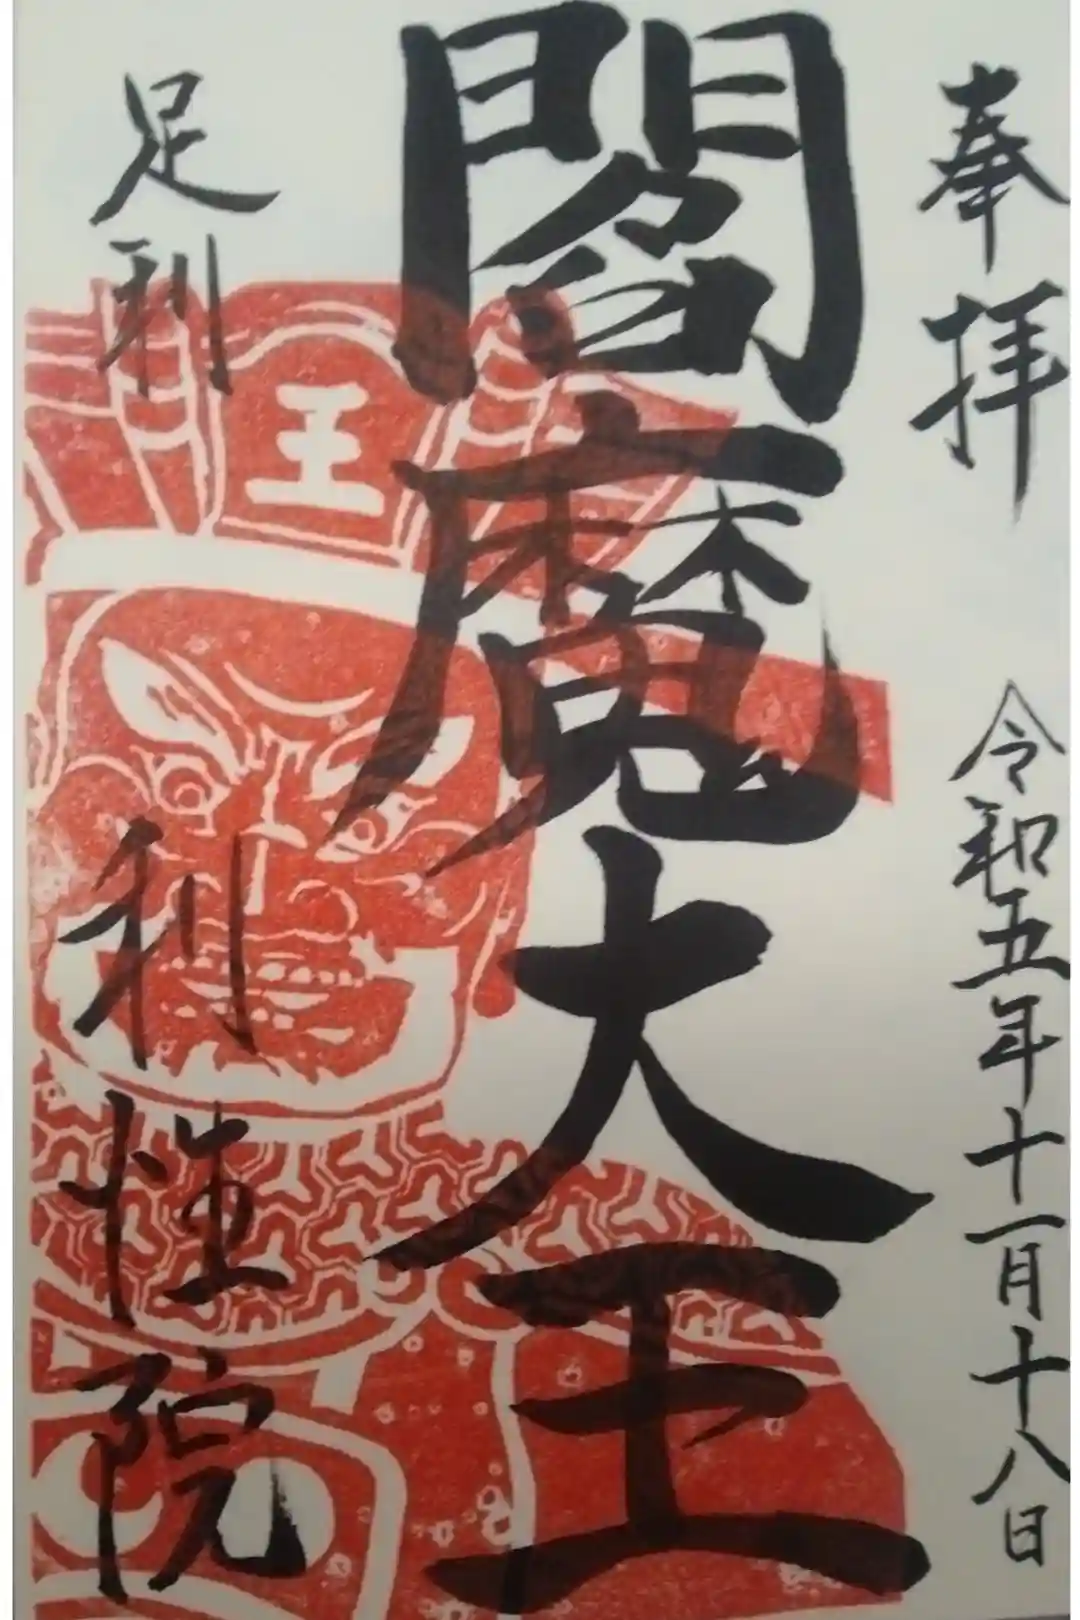 奉拝
令和五年十一月十八日
閻魔大王
王
足利
利性院